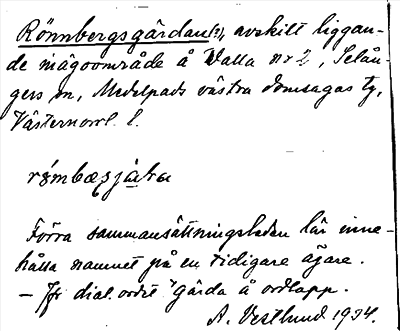 Rönnbergsgårdan(?), avskilt liggan-
de inägoområde å Valla nr 2, Selån-
gers sn, Medelpads västra domsagas tg,
Västernorrl. l.
Förra sammansättningsleden lär inne-
hålla namnet på en tidigare ägare.
– Jfr dial. ordet gärda å ordlapp.
A. Vestlund 1934.